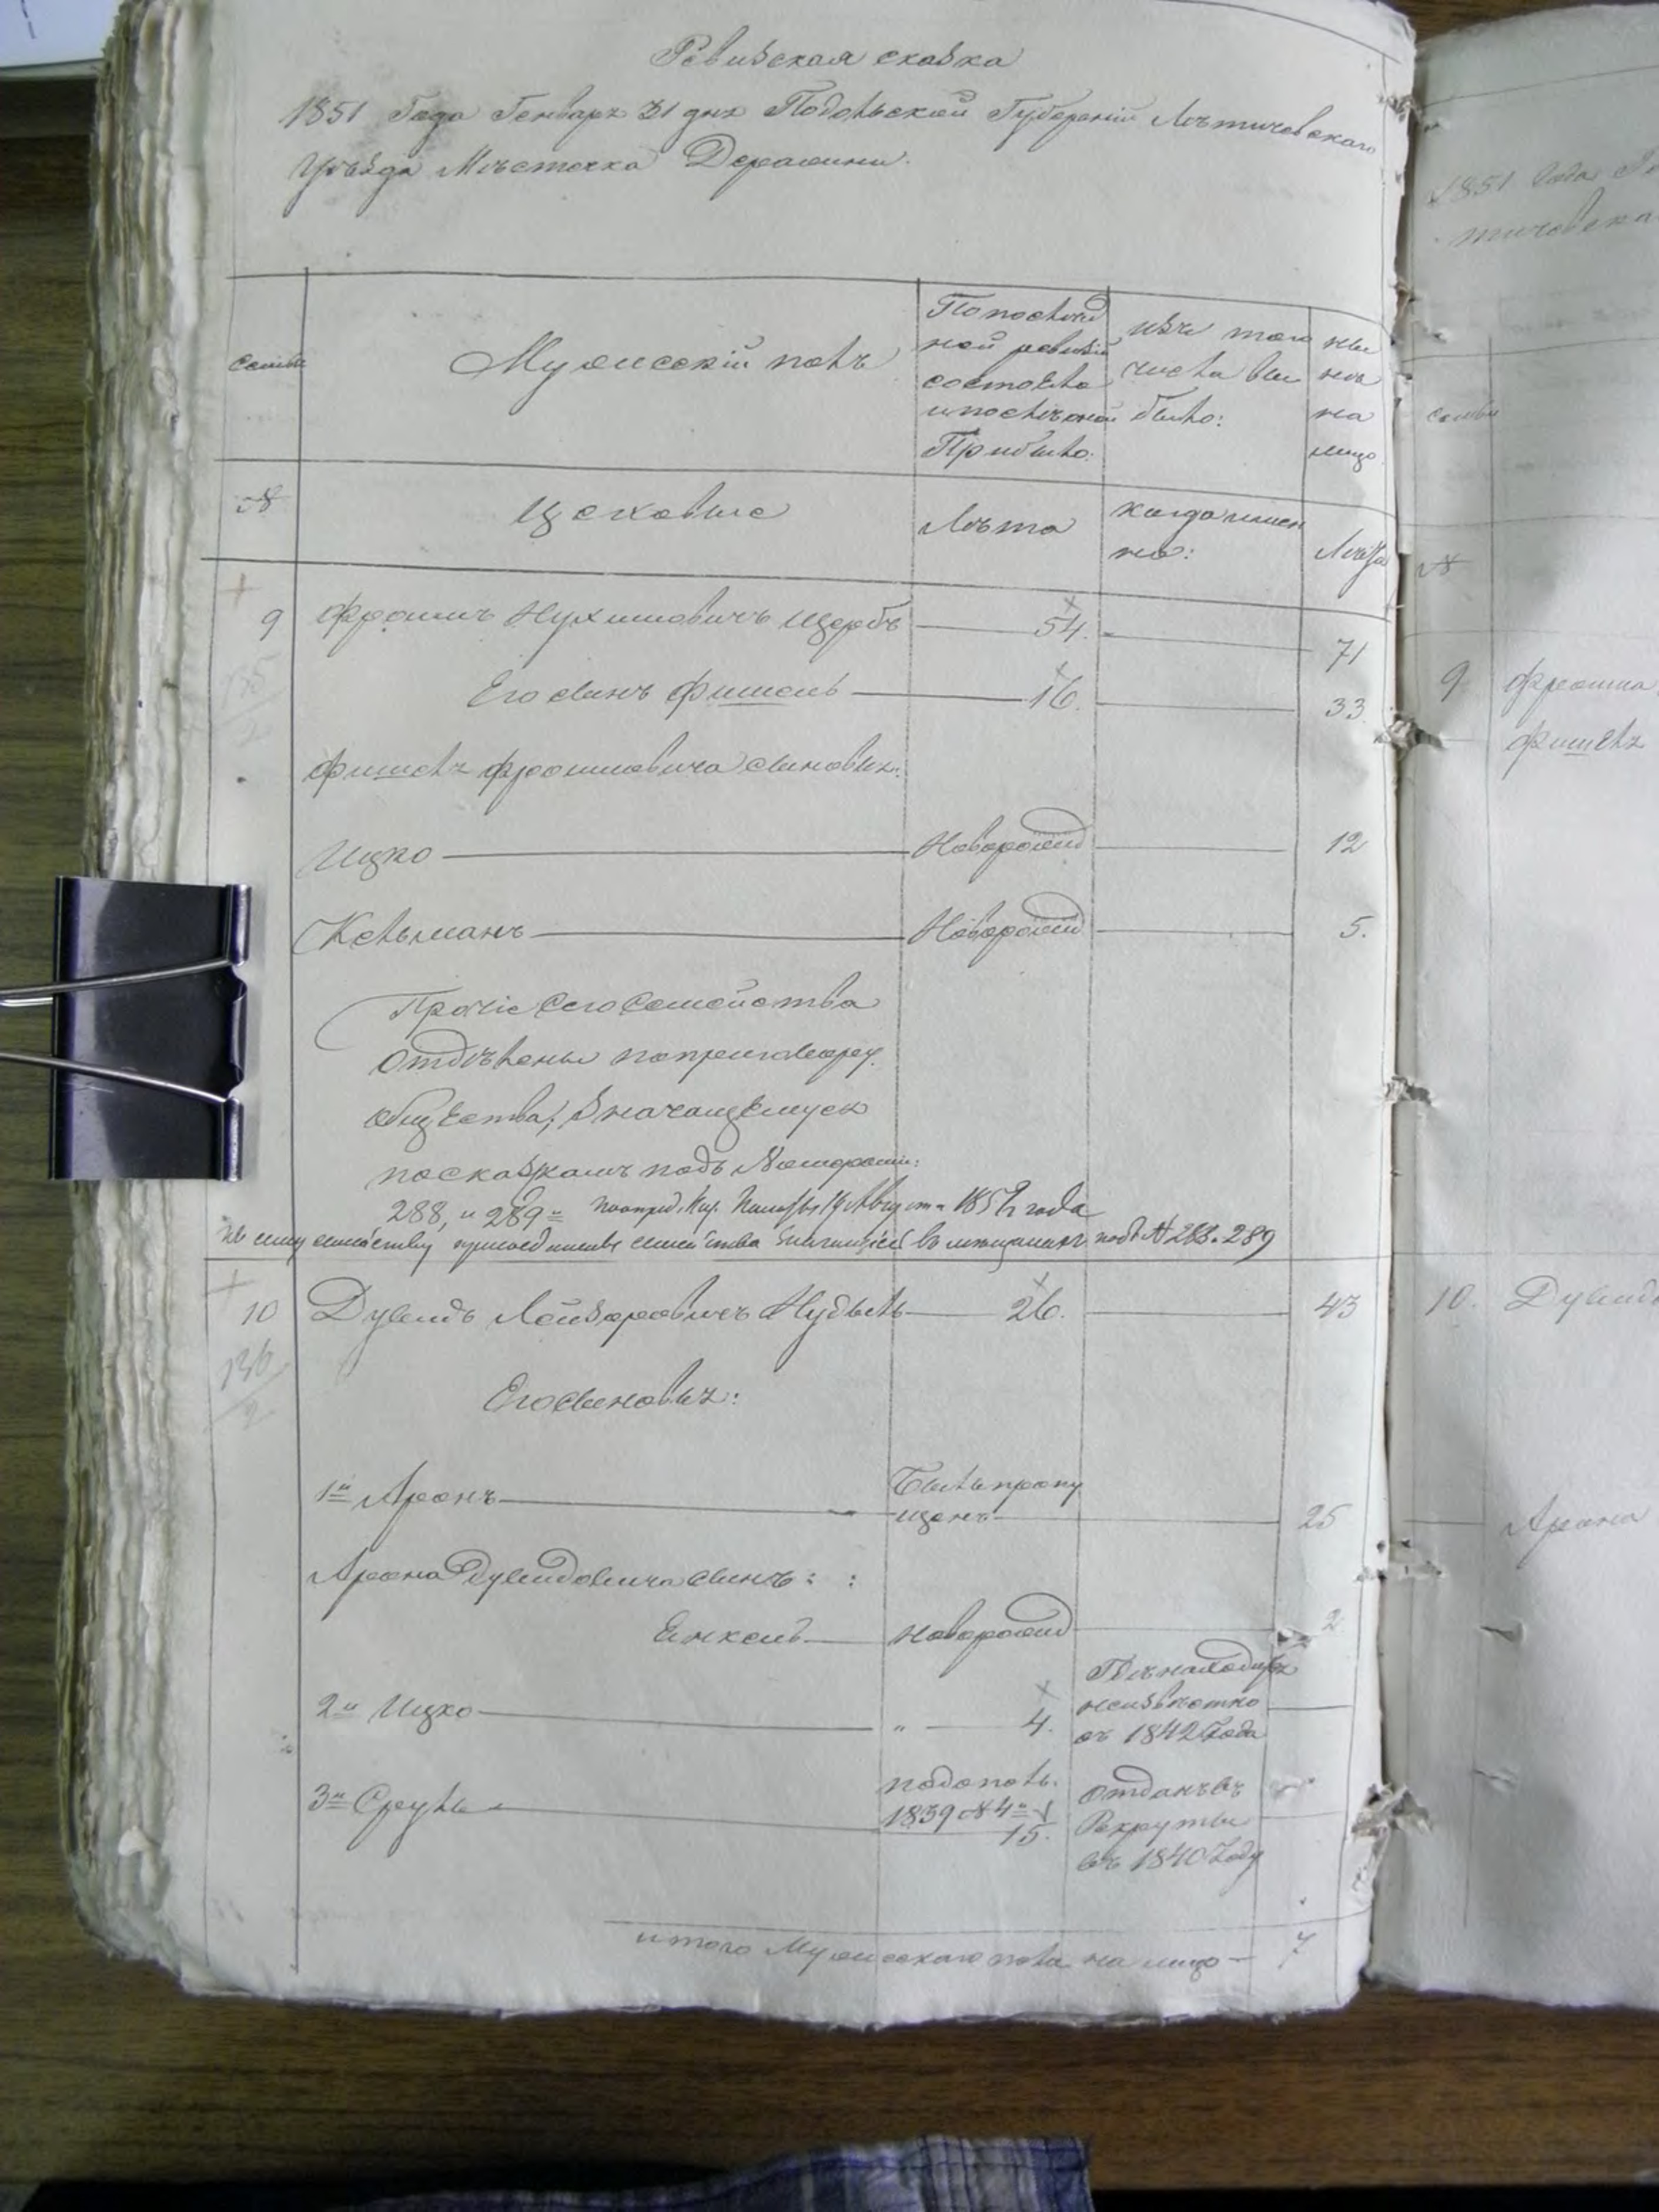 Ревизская сказка
1851 Года Генваря 31 дня Подольской Губернiи Лѣтичевскаго
Уѣзда Мѣстечка Деражни.
семьи
Мужескiй полъ
По послѣд
ней ревизiи
состояло
и послѣ оной
Прибыло:
изъ того
числа вы
было:
ны
нѣ
на
лицо
№
Цеховые
Лѣта
когда имен
но:
Лѣта
9 Фроимъ Нухимовичъ Щербъ 54. 71
Его сынъ Фишель 16. 33
Фишеля Фроимовича сыновья:
Ицко Новорожд 12
Кельманъ Новорожд 5.
Прочiе сего семейства
отдѣлены по приговору
общества, значащемуся
по сказкамъ подъ Номерами:
288, " 289 " 1852 года
къ сему семейству присоединены семейства значащiеся въ мещанахъ подъ № 288 и 289
10 Дувидъ Лейзеровичъ Нудель 26. 43
136
2
Его сыновья:
1й Аронъ Былъ пропу
щенъ 25
Арона Дувидовича сынъ:
Енкель новорожд 2
2й Ицко " 4.
Гдѣ находится
неизвѣстно
съ 1842 Года
3й Сруль
по допол.
1839 № 4й
15.
отданъ въ
Рекруты
въ 1840 Году
итого Мужескаго пола на лицо — 7
1851 Года
тичевска
семьи
№
9 Фроима
Фишеля
10. Дувида
Арона